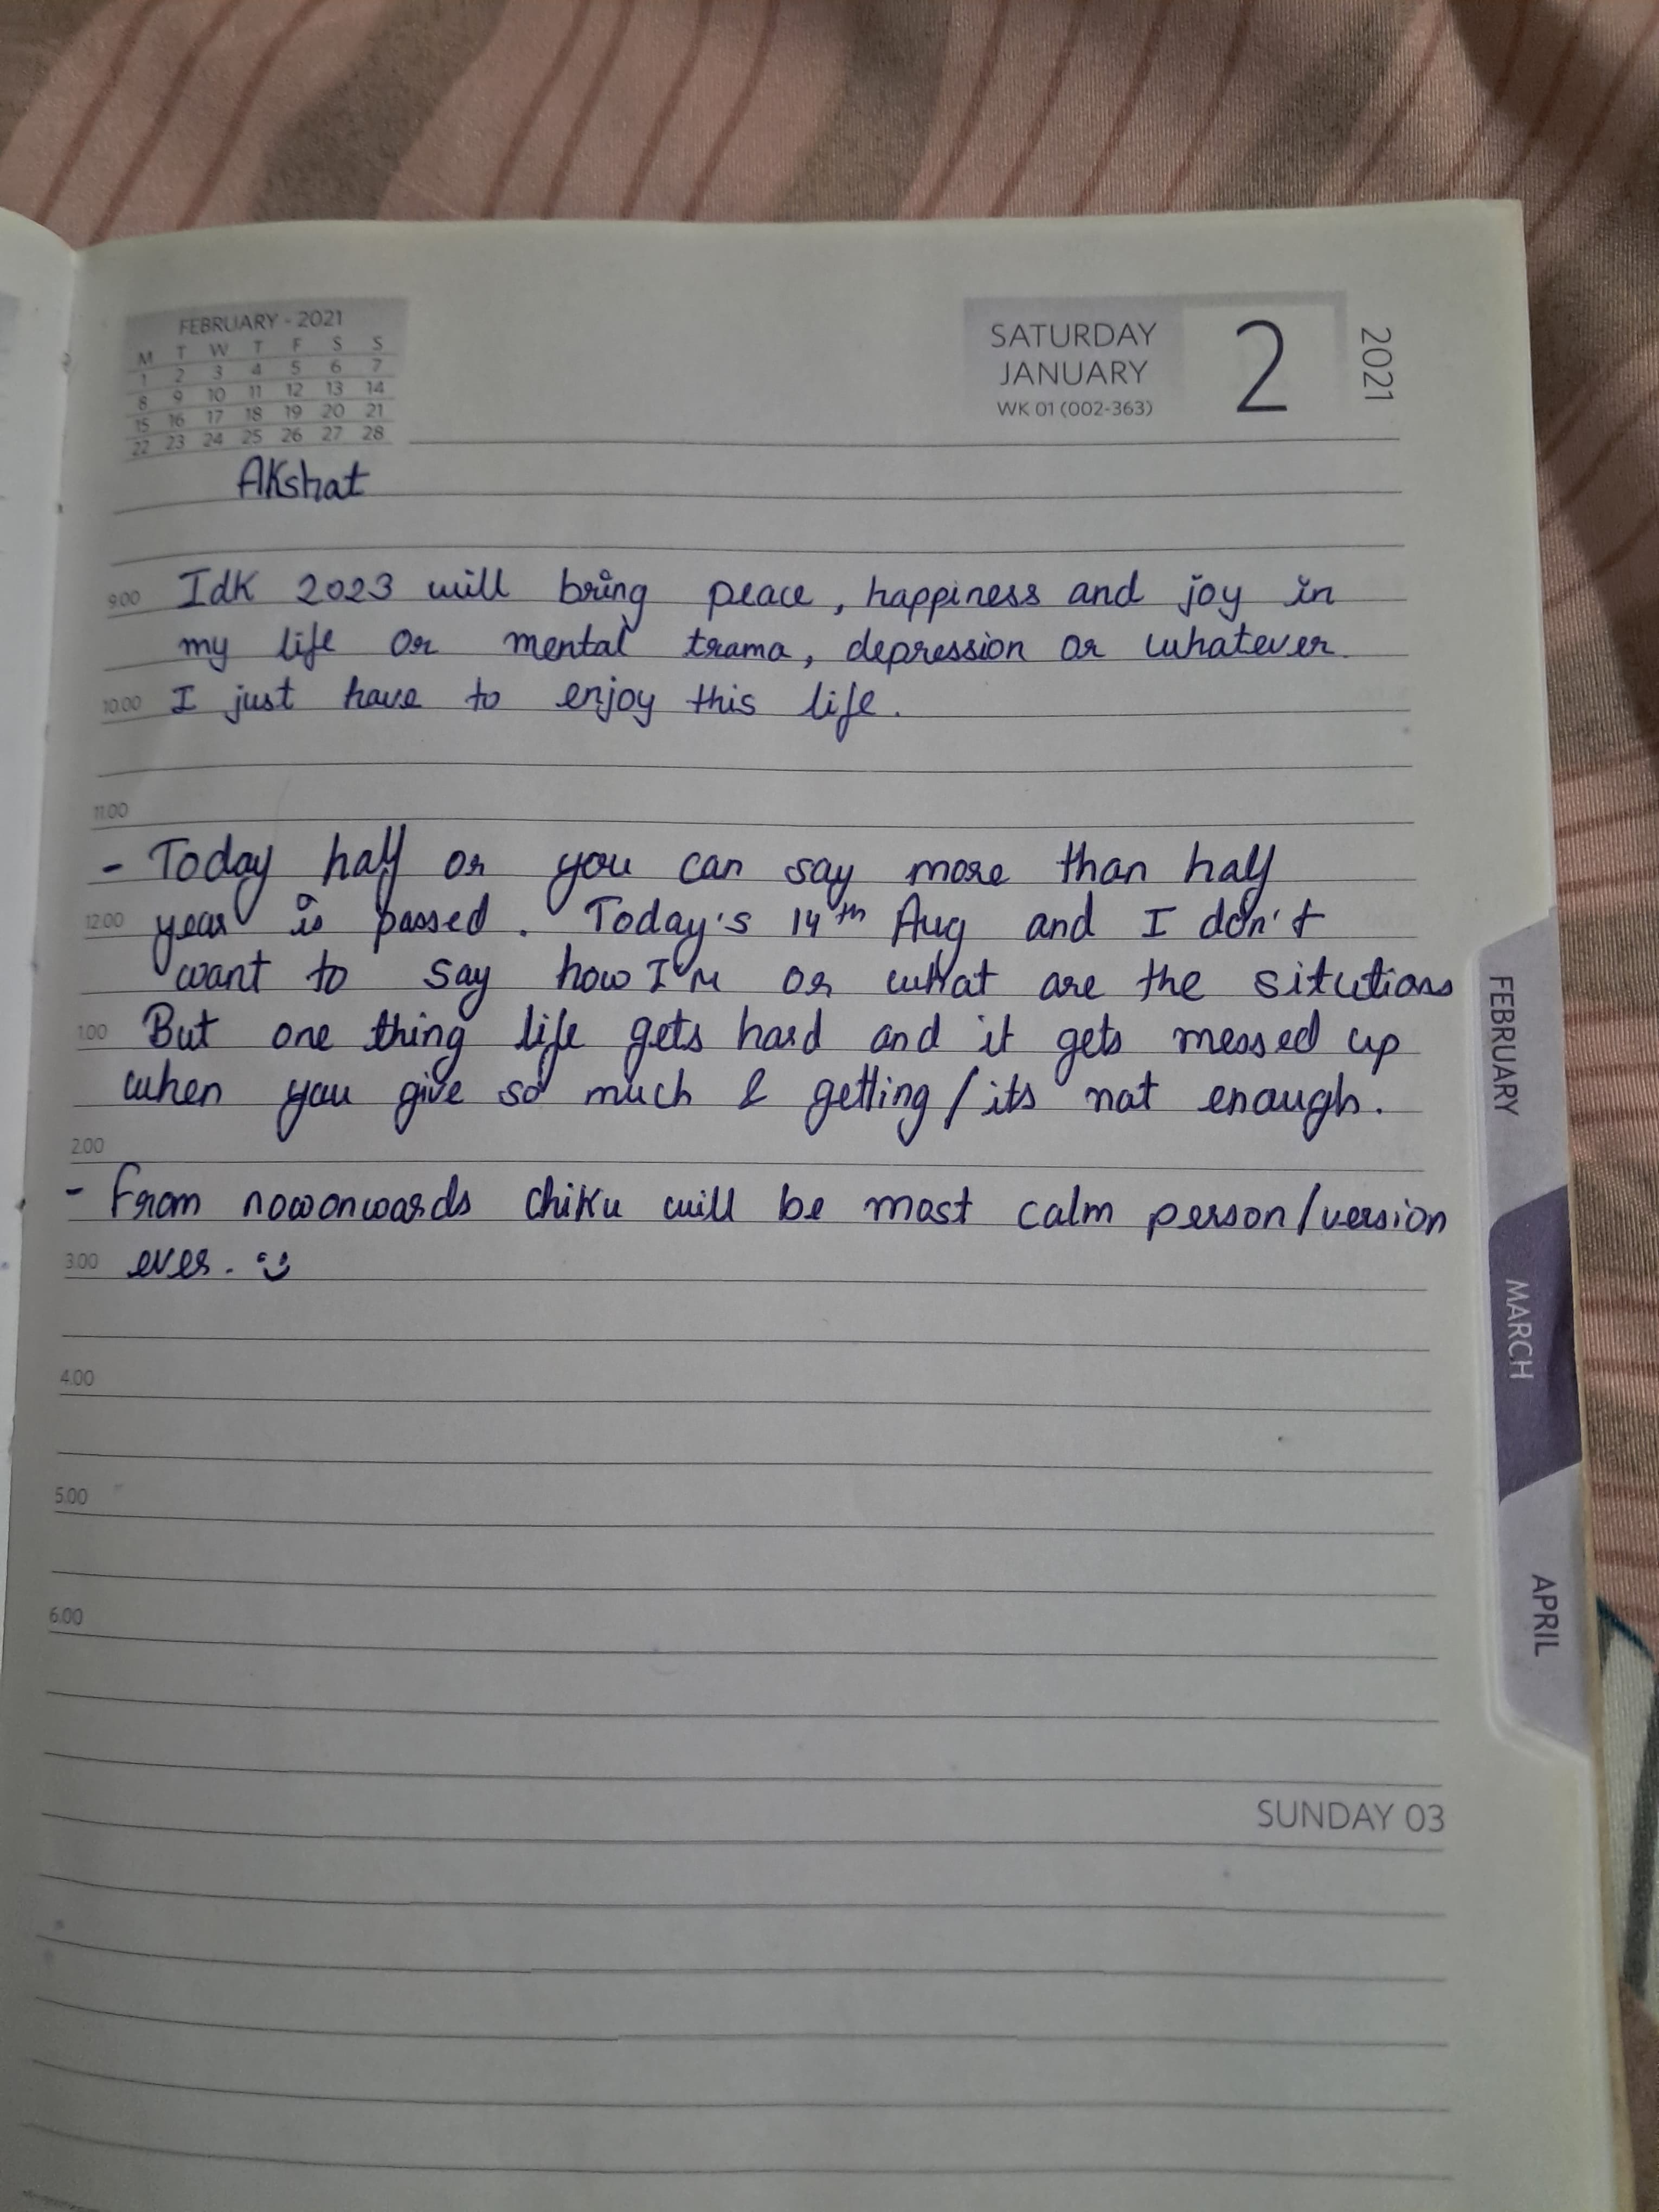 FEBRUARY - 2021
M T W T F S S
1 2 3 4 5 6 7
8 9 10 11 12 13 14
15 16 17 18 19 20 21
22 23 24 25 26 27 28
SATURDAY
JANUARY
WK 01 (002-363)
2
2021
AKshat
9.00 IdK 2023 will bring peace, happiness and joy in
my life or mental trama, depression or whatever.
10.00 I just have to enjoy this life.
11.00
- Today half or you can say more than half
12.00 year is passed. Today's 14th Aug and I don't
want to say how I'm or what are the situtions
1.00 But one thing life gets hard and it gets messed up
when you give so much & getting/its not enough.
2.00
- From nowonwards chiku will be most calm person/version
3.00 ever. :)
4.00
5.00
6.00
SUNDAY 03
FEBRUARY
MARCH
APRIL